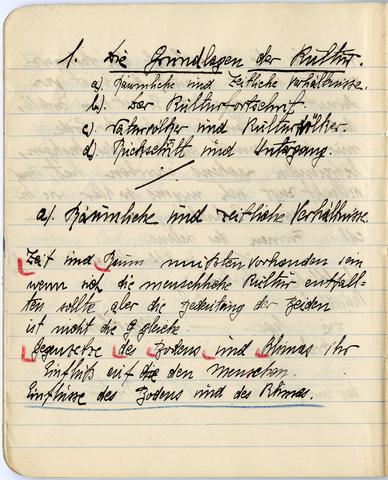 1. Die Grundlagen der Kultur.
a). Räumliche und Zeitliche Verhältnisse.
b). Der Kulturfortschrift.
c). Naturvölker und Kulturvölker.
d). Rückschritt und Untergang.
a). Räumliche und zeitliche Verhältnisse.
Zeit und Raum mußten vorhanden sein
wenn die menschliche Kultur entfal-
ten sollte, aber die Bedeutung der beiden
ist nicht die gleiche.
des Bodens und Klimas ihr
Einfluß auf den Menschen.
Einflüsse des Bodens und des Klimas.